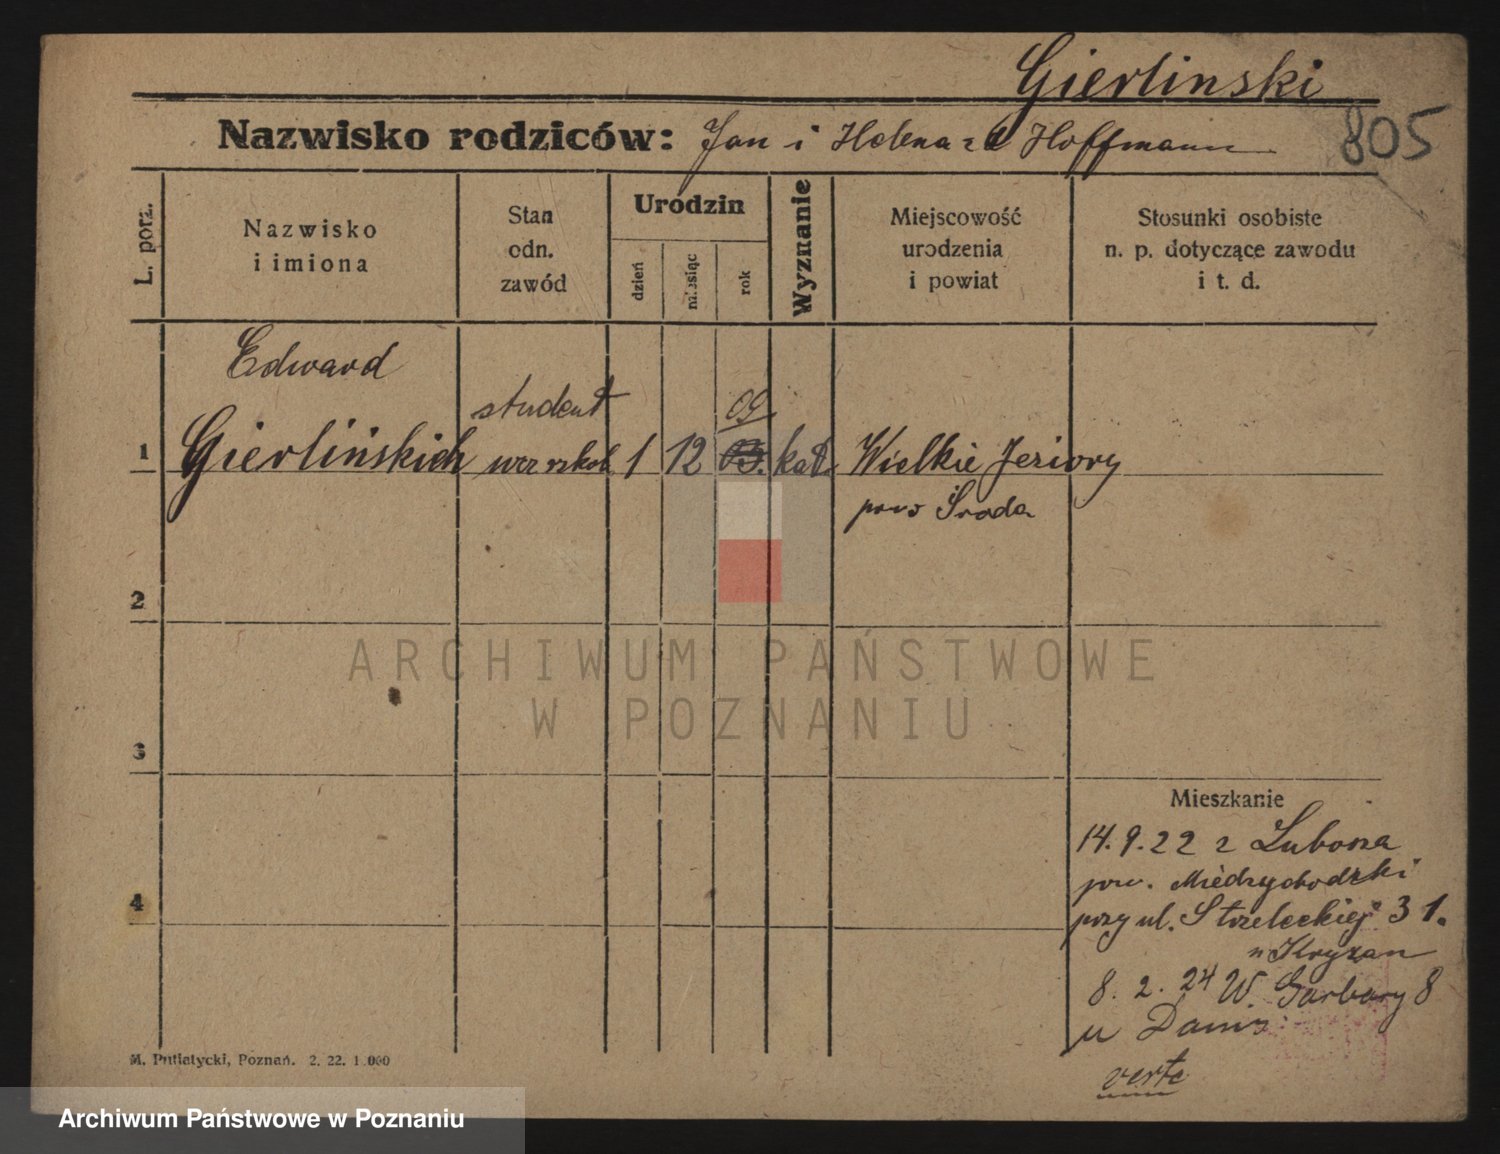 Gierlinski
Nazwisko rodziców: Jan i Helena z d Hoffmann
805
L. porz.
Nazwisko
i imiona
Stan
odn.
zawód
Urodzin
dzień
miesiąc
rok
Wyznanie
Miejscowość
urodzenia
i powiat
Stosunki osobiste
n. p. dotyczące zawodu
i t. d.
Edward
student
09
1 Gierlińskich 1 12 03. kat. Wielkie Jeziory
pow Środa
2
ARCHIWUM PAŃSTWOWE
W POZNANIU
3
Mieszkanie
14.9.22 z Lubosza
pow. Międzychodzki
4
przy ul. Strzeleckiej 31.
u Kryzan
8. 2. 24 W. Garbary 8
u
verte
M. Putiatycki, Poznań. 2. 22. 1.000
Archiwum Państwowe w Poznaniu